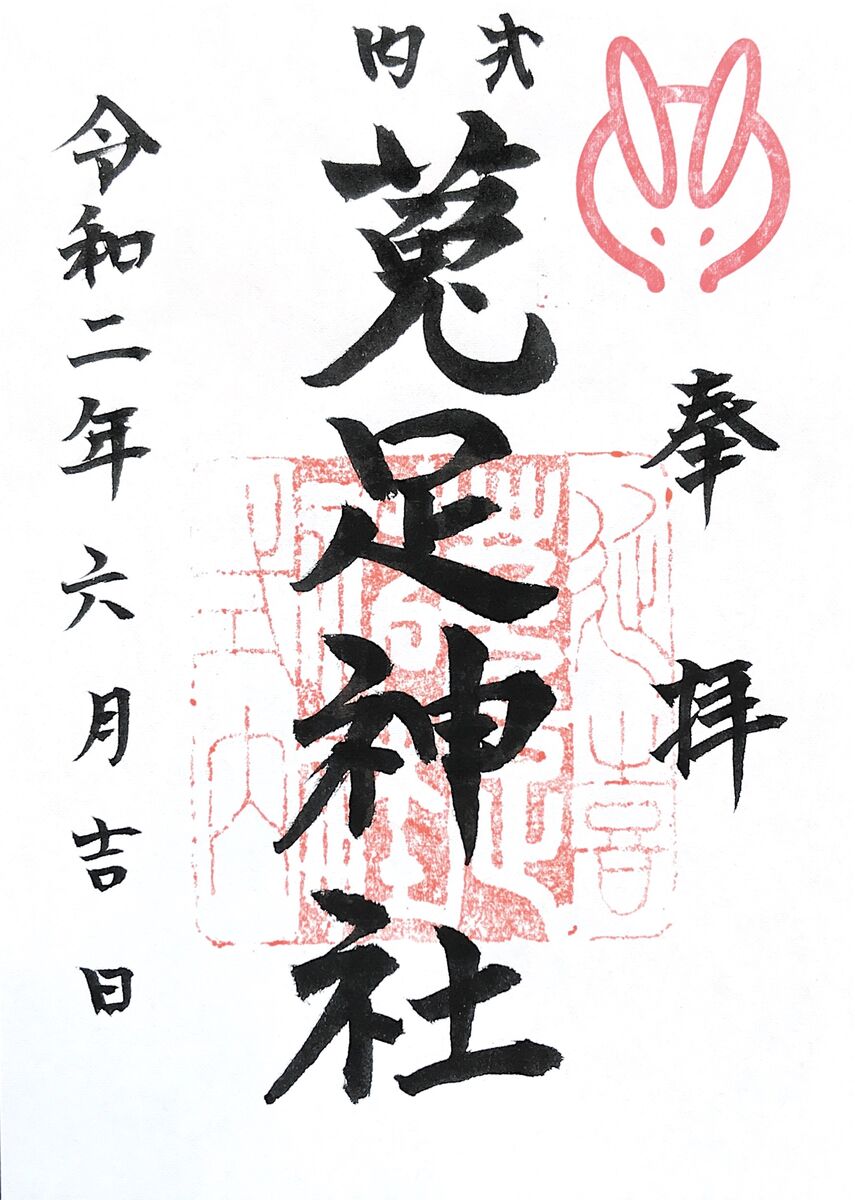 奉拝
式内
菟足神社
令和二年六月吉日